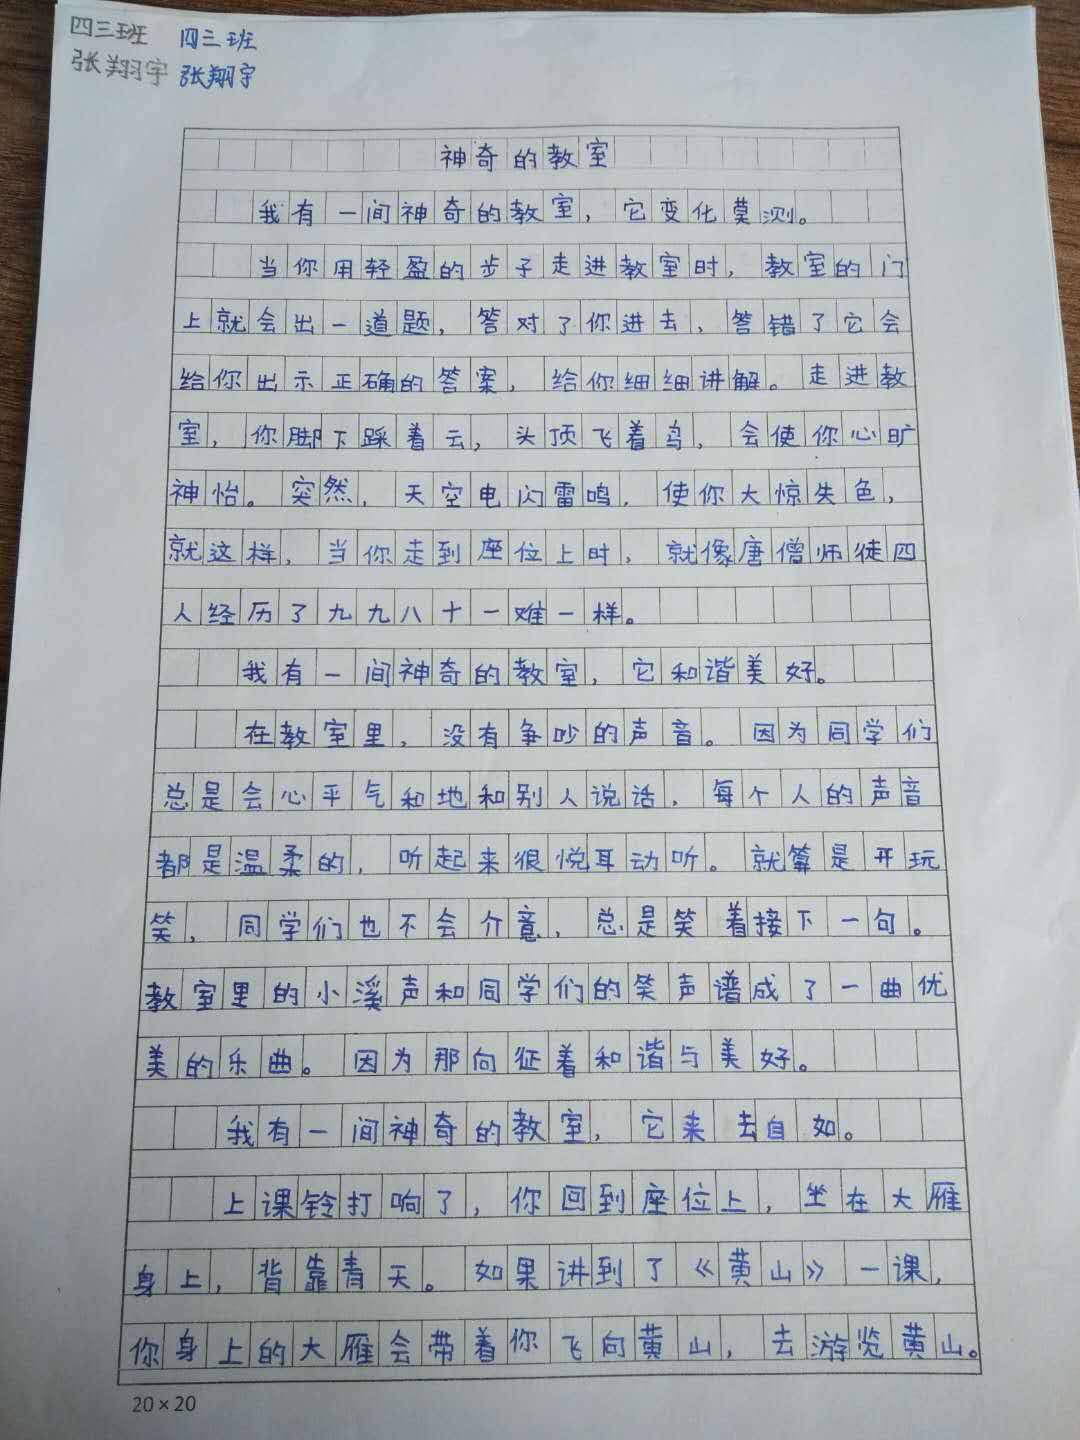 四三班 四三班
张翔宇 张翔宇
神奇的教室
我有一间神奇的教室，它变化莫测。
当你用轻盈的步子走进教室时，教室的门
上就会出一道题，答对了你进去，答错了它会
给你出示正确的答案，给你细细讲解。走进教
室，你脚下踩着云，头顶飞着鸟，会使你心旷
神怡。突然，天空电闪雷鸣，使你大惊失色，
就这样，当你走到座位上时，就像唐僧师徒四
人经历了九九八十一难一样。
我有一间神奇的教室，它和谐美好。
在教室里，没有争吵的声音。因为同学们
总是会心平气和地和别人说话，每个人的声音
都是温柔的，听起来很悦耳动听。就算是开玩
笑，同学们也不会介意，总是笑着接下一句。
教室里的小溪声和同学们的笑声谱成了一曲优
美的乐曲。因为那向征着和谐与美好。
我有一间神奇的教室，它来去自如。
上课铃打响了，你回到座位上，坐在大雁
身上，背靠青天。如果讲到了《黄山》一课，
你身上的大雁会带着你飞向黄山，去游览黄山。
20×20